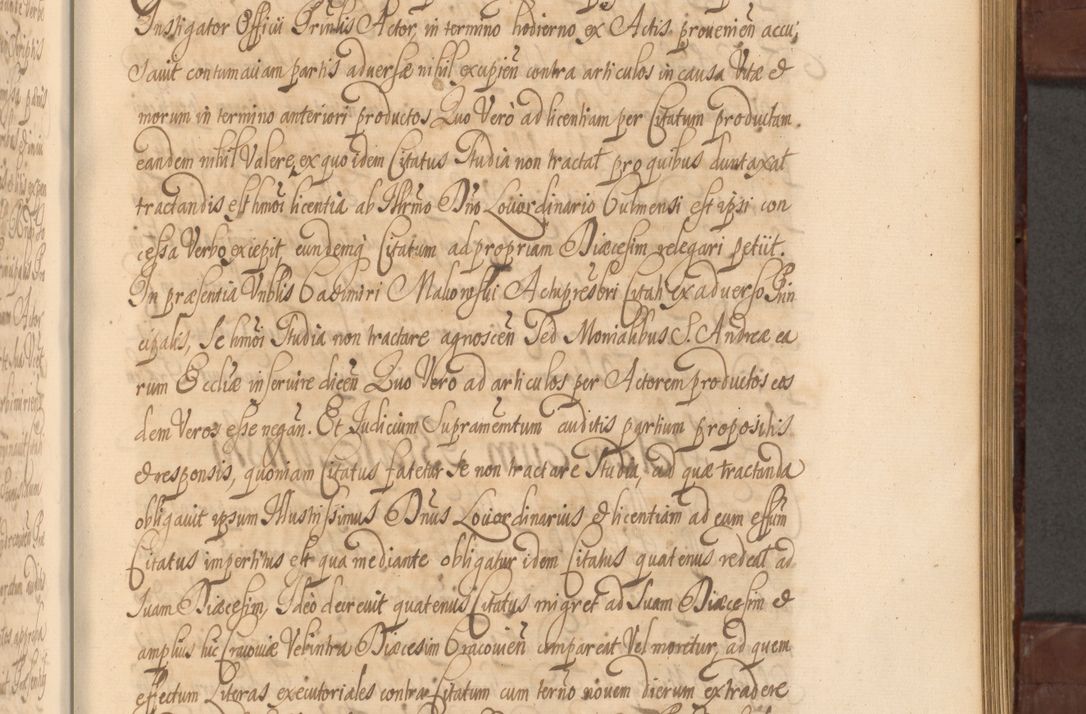 Instigator Officii Prinlis Actor, in termino hodierno ex Actis provenien̄ accu,
savit contumaciam partis adversæ nihil excipien̄ contra articulos in causa Vitæ et
morum in termino anteriori productos Quo Verò ad licentiam per Citatum productam
eandem nihil Valere, ex quo idem Citatus Studia non tractat pro quibus duntaxat
tractandis est hmōi licentia ab Illrmo Dno Loci ordinario Culmensi est ipsi con
cessa Verbo excepit, eundemq Citatum ad propriam Diæcesim relegari petiit.
In præsentia Vnblis Casimiri Makowski Actu præsbri Citati ex adverso Prin
cipalis, Se hmōi Studia non tractare agnoscen̄ Sed Monialibus S. Andreæ ea
rum Eccliæ inservire dicen̄ Quo Vero ad articulos per Actorem productos eos
dem Veros esse negan̄. Et Judicium Supramentum auditis partium propositis
et responsis, quoniam Citatus fatetur se non tractare Studia, ad quæ tractanda
obligavit ipsum Illustrissimus Dnus Loci ordinarius et licentiam ad eum effūm
Citatus impertitus est qua mediante obligatur idem Citatus quatenus redeat ad
suam Diæcesim, Ideò decrevit quatenus Citatus migret ad Suam Diæcesim et
amplius hic Cracoviæ Vel intra Diæcesim Cracovien̄ compareat Vel moretur, ad quem
effectum Literas executoriales contra Citatum cum terno novem dierum extradere